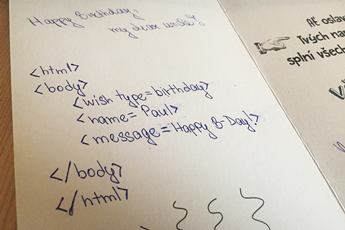 Happy Birthday,
my dear uncle!
<html>
<body>
<wish type=birthday>
<name= Paul>
<message=Happy B-Day!>
</body>
</html>
AŤ oslav
Tvých nar
splní všech